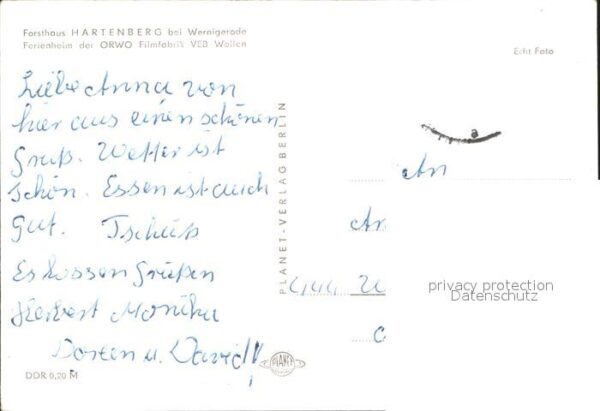 Forsthaus HARTENBERG bei Wernigerode
Ferienheim der ORWO Filmfabrik VEB Wolfen
Echt Foto
Liebe Anna von
hier aus einen schönen
Gruß. Wetter ist
schön. Essen ist auch
gut. Tschüß
Es lassen Grüßen
Herbert Monika
Doreen u. David!
PLANET-VERLAG BERLIN
a
An
privacy protection
Datenschutz
PLANET
DDR 0,20 M